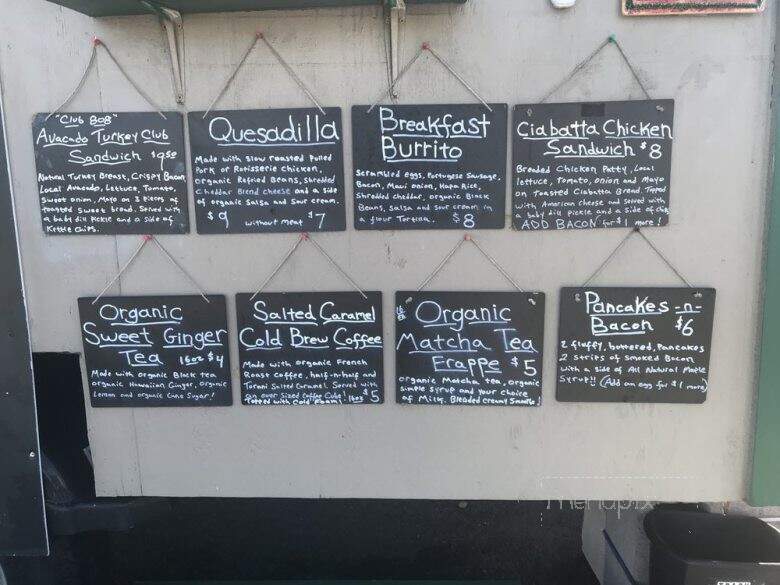 "Club 808"
Avacado Turkey Club
Sandwich $9.50
Natural Turkey Breast, Crispy Bacon
Local Avocado, Lettuce, Tomato,
Sweet onion, Mayo on 3 pieces of
toasted sweet bread. Served with
a baby dill Pickle and a side of
Kettle Chips.
Quesadilla
Made with slow roasted Pulled
Pork or Rotisserie Chicken,
organic Refried Beans, Shredded
Cheddar Blend cheese and a side
of organic salsa and sour cream.
$9 without meat $7
Breakfast
Burrito
Scrambled eggs, Portugese Sausage,
Bacon, Maui onion, Hapa Rice,
Shredded cheddar, organic Black
Beans, Salsa and Sour cream in
a flour Tortilla. $8
Ciabatta Chicken
Sandwich $8
Breaded Chicken Patty, Local
lettuce, Tomato, onion and Mayo
on Toasted Ciabatta Bread. Topped
with American cheese and served with
a baby dill pickle and a side of chips
ADD BACON for $1 more!
Organic
Sweet Ginger
Tea 16oz $4
Made with organic Black tea
organic Hawaiian Ginger, organic
Lemon and organic Cane Sugar!
Salted Caramel
Cold Brew Coffee
Made with organic French
Roast Coffee, half-n-half and
Torani Salted Caramel. Served with
an over sized Coffee Cube!
Topped with Cold Foam! 16oz $5
16 oz
Organic
Matcha Tea
Frappe $5
organic Matcha tea, organic
simple syrup and your choice
of Milk. Blended creamy smooth!
Pancakes -n-
Bacon $6
2 fluffy, buttered, Pancakes
2 strips of smoked Bacon
with a side of All Natural Maple
Syrup!! (Add an egg for $1 more)
menupix